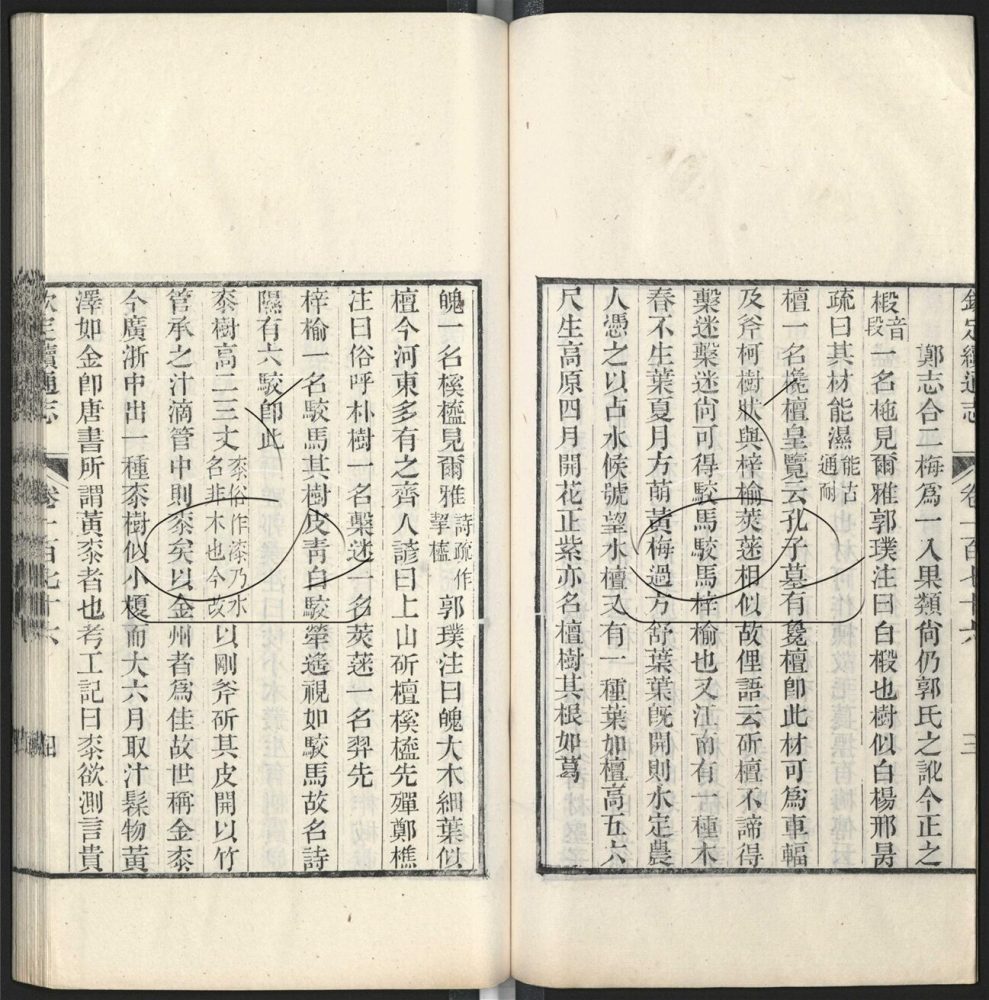 欽定續通志 卷一百七十六 三
鄭志合二梅爲一入果類尙仍郭氏之訛今正之
椴音段一名柂見爾雅郭璞注曰白椴也樹似白楊邢昺
疏曰其材能濕能古通耐
檀一名欃檀皇覽云孔子墓有毚檀卽此材可爲車輻
及斧柯樹狀與梓榆莢蒾相似故俚語云斫檀不諦得
檕迷檕迷尙可得駮馬駮馬梓榆也又江南有一種木
春不生葉夏月方萌黃梅過方舒葉葉旣開則水定農
人憑之以占水候號望水檀又有一種葉如檀高五六
尺生高原四月開花正紫亦名檀樹其根如葛
魄一名榽橀見爾雅詩疏作挈橀郭璞注曰魄大木細葉似
檀今河東多有之齊人諺曰上山斫檀榽橀先殫鄭樵
注曰俗呼朴樹一名檕迷一名莢蒾一名羿先
梓榆一名駮馬其樹皮靑白駮犖遙視如駮馬故名詩
隰有六駮卽此
桼樹高二三丈桼俗作漆乃水名非木也今故以剛斧斫其皮開以竹
管承之汁滴管中則桼矣以金州者爲佳故世稱金桼
今廣浙中出一種桼樹似小榎而大六月取汁髹物黃
澤如金卽唐書所謂黃桼者也考工記曰桼欲測言貴
欽定續通志 卷一百七十六